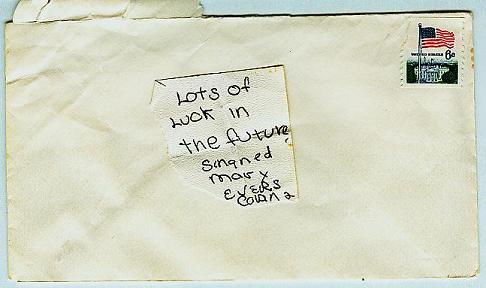 UNITED STATES
6c
Lots of
Luck in
the future
singned
Mar x
EVERS